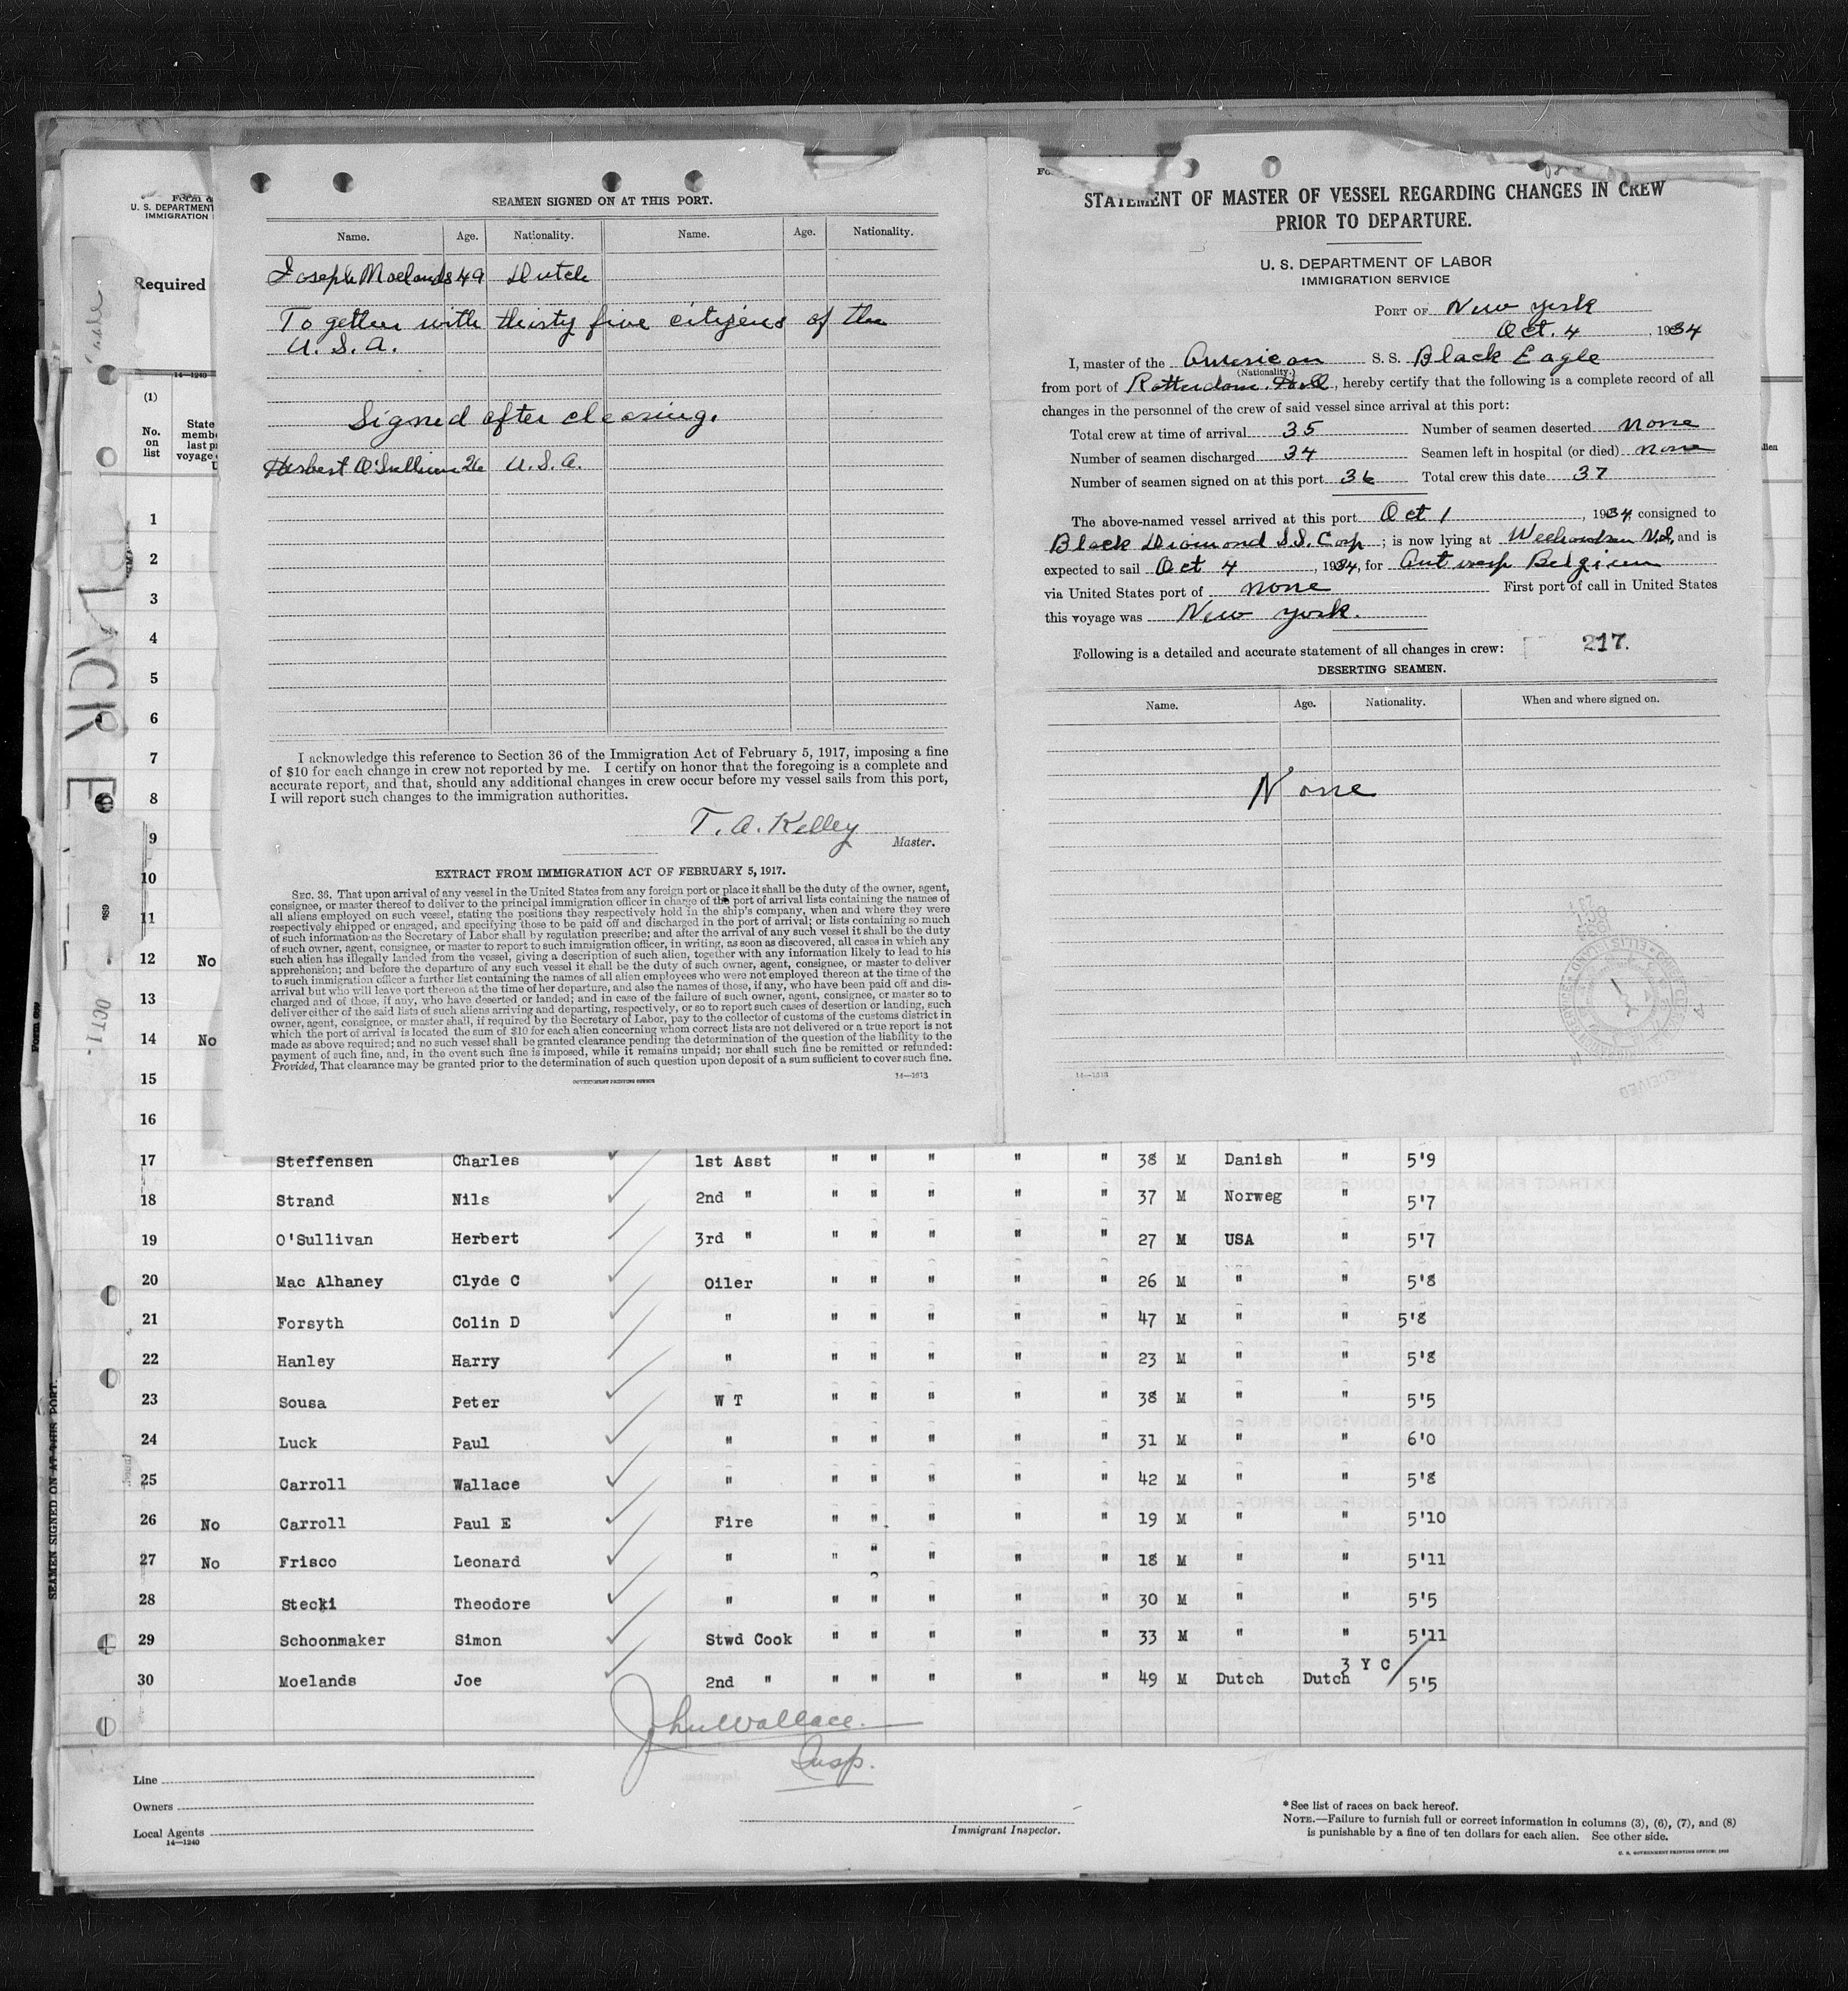 SEAMEN SIGNED ON AT THIS PORT.
Name. Age. Nationality. Name. Age. Nationality.
Joseph Moelands 49 Dutch
Together with thirty five citizens of the
U.S.A.
Signed after clearing.
Herbert O'Sullivan 26 U.S.A.
I acknowledge this reference to Section 36 of the Immigration Act of February 5, 1917, imposing a fine
of $10 for each change in crew not reported by me. I certify on honor that the foregoing is a complete and
accurate report, and that, should any additional changes in crew occur before my vessel sails from this port,
I will report such changes to the immigration authorities.
T. A. Kelley
Master.
EXTRACT FROM IMMIGRATION ACT OF FEBRUARY 5, 1917.
SEC. 36. That upon arrival of any vessel in the United States from any foreign port or place it shall be the duty of the owner, agent,
consignee, or master thereof to deliver to the principal immigration officer in charge of the port of arrival lists containing the names of
all aliens employed on such vessel, stating the positions they respectively hold in the ship's company, when and where they were
respectively shipped or engaged, and specifying those to be paid off and discharged in the port of arrival; or lists containing so much
of such information as the Secretary of Labor shall by regulation prescribe; and after the arrival of any such vessel it shall be the duty
of such owner, agent, consignee, or master to report to such immigration officer, in writing, as soon as discovered, all cases in which any
such alien has illegally landed from the vessel, giving a description of such alien, together with any information likely to lead to his
apprehension; and before the departure of any such vessel it shall be the duty of such owner, agent, consignee, or master to deliver
to such immigration officer a further list containing the names of all alien employees who were not employed thereon at the time of the
arrival but who will leave port thereon at the time of her departure, and also the names of those, if any, who have been paid off and dis-
charged and of those, if any, who have deserted or landed; and in case of the failure of such owner, agent, consignee, or master so to
deliver either of the said lists of such aliens arriving and departing, respectively, or so to report such cases of desertion or landing, such
owner, agent, consignee, or master shall, if required by the Secretary of Labor, pay to the collector of customs of the customs district in
which the port of arrival is located the sum of $10 for each alien concerning whom correct lists are not delivered or a true report is not
made as above required; and no such vessel shall be granted clearance pending the determination of the question of the liability to the
payment of such fine, and, in the event such fine is imposed, while it remains unpaid; nor shall such fine be remitted or refunded:
Provided, That clearance may be granted prior to the determination of such question upon deposit of a sum sufficient to cover such fine.
GOVERNMENT PRINTING OFFICE 14—1613
STATEMENT OF MASTER OF VESSEL REGARDING CHANGES IN CREW
PRIOR TO DEPARTURE.
U. S. DEPARTMENT OF LABOR
IMMIGRATION SERVICE
PORT OF New York
Oct. 4, 1934
I, master of the American S. S. Black Eagle
(Nationality.)
from port of Rotterdam. Holl, hereby certify that the following is a complete record of all
changes in the personnel of the crew of said vessel since arrival at this port:
Total crew at time of arrival 35 Number of seamen deserted none
Number of seamen discharged 34 Seamen left in hospital (or died) none
Number of seamen signed on at this port 36 Total crew this date 37
The above-named vessel arrived at this port Oct 1, 1934, consigned to
Black Diamond S.S. Corp; is now lying at Weehawken N.J. and is
expected to sail Oct 4, 1934, for Antwerp Belgium
via United States port of none First port of call in United States
this voyage was New York.
Following is a detailed and accurate statement of all changes in crew: 217.
DESERTING SEAMEN.
Name. Age. Nationality. When and where signed on.
None
14—1613
U. S. DEPARTMENT
IMMIGRATION
Required
14—1240
(1)
No.
on
list
State
membe
last p
voyage
BLACK E
OCT 1
1
2
3
4
5
6
7
8
9
10
11
12 No
13
14 No
15
16
17 Steffensen Charles 1st Asst " " " " " 38 M Danish " 5'9
18 Strand Nils 2nd " " " " " " 37 M Norweg " 5'7
19 O'Sullivan Herbert 3rd " " " " " " 27 M USA " 5'7
20 Mac Alhaney Clyde C Oiler " " " " " 26 M " " 5'8
21 Forsyth Colin D " " " " " " 47 M " " 5'8
22 Hanley Harry " " " " " " 23 M " " 5'8
23 Sousa Peter W T " " " " " 38 M " " 5'5
24 Luck Paul " " " " " " 31 M " " 6'0
25 Carroll Wallace " " " " " " 42 M " " 5'8
26 No Carroll Paul E Fire " " " " " 19 M " " 5'10
27 No Frisco Leonard " " " " " " 18 M " " 5'11
28 Stecki Theodore " " " " " " 30 M " " 5'5
29 Schoonmaker Simon Stwd Cook " " " " " 33 M " " 5'11
30 Moelands Joe 2nd " " " " " " 49 M Dutch Dutch 3 Y C 5'5
John Wallace
Insp.
Line
Owners
Local Agents
14—1240
Immigrant Inspector.
* See list of races on back hereof.
NOTE.—Failure to furnish full or correct information in columns (3), (6), (7), and (8)
is punishable by a fine of ten dollars for each alien. See other side.
SEAMEN SIGNED ON AT THIS PORT.